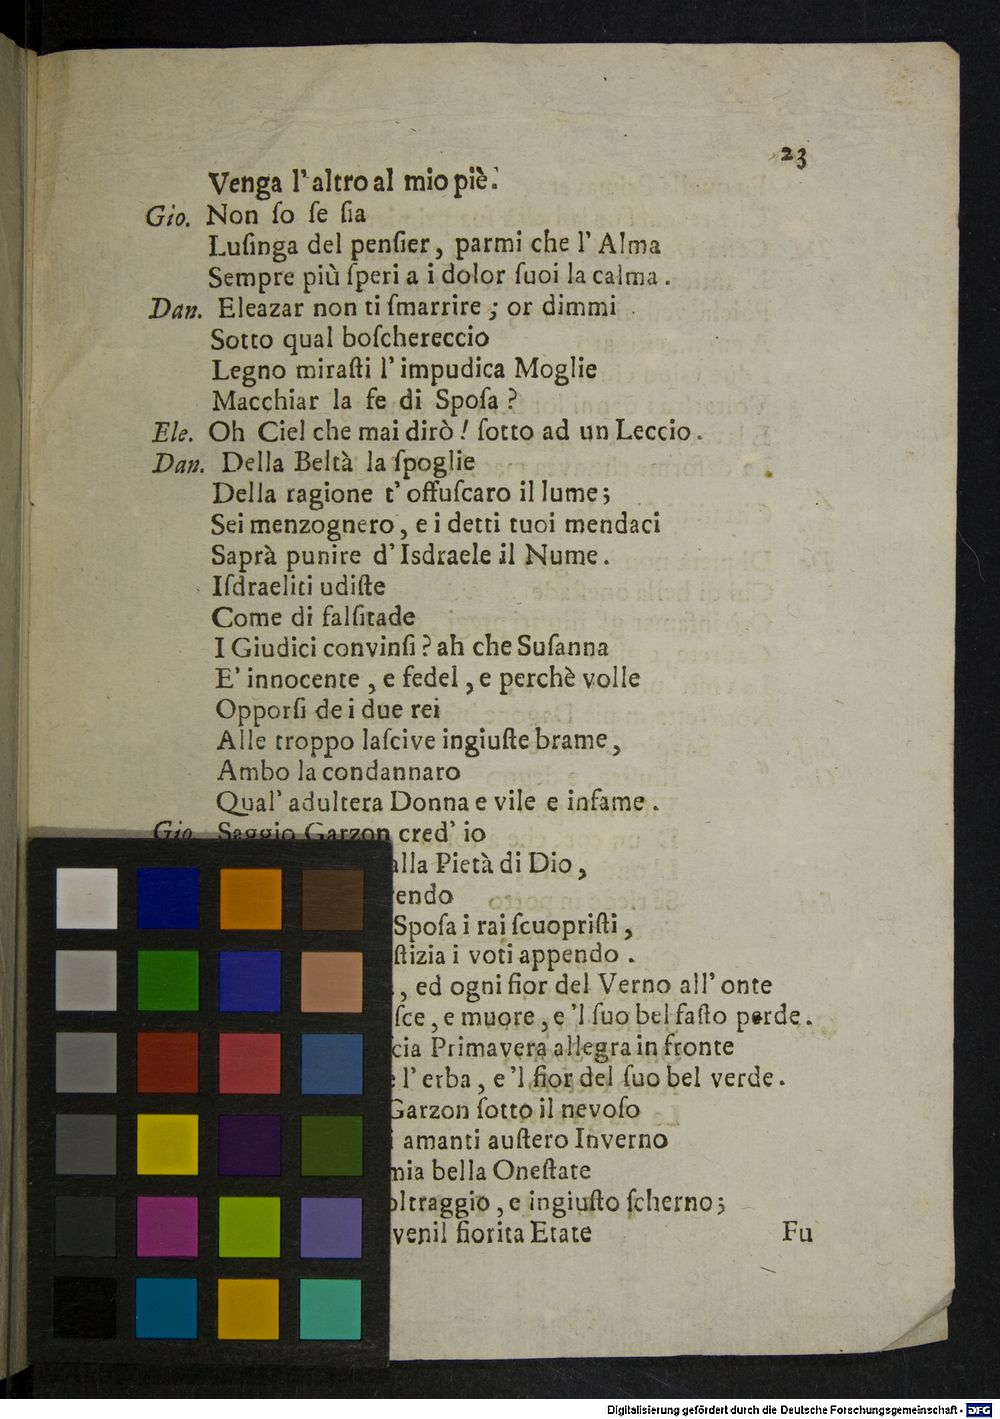 23
Venga l' altro al mio piè.
Gio. Non ſo ſe ſia
Luſinga del penſier, parmi che l' Alma
Sempre più ſperi a i dolor ſuoi la calma.
Dan. Eleazar non ti ſmarrire; or dimmi
Sotto qual boſchereccio
Legno miraſti l' impudica Moglie
Macchiar la fe di Spoſa?
Ele. Oh Ciel che mai dirò! ſotto ad un Leccio.
Dan. Della Beltà la ſpoglie
Della ragione t' offuſcaro il lume;
Sei menzognero, e i detti tuoi mendaci
Saprà punire d' Isdraele il Nume.
Iſdraeliti udiſte
Come di falſitade
I Giudici convinſi? ah che Suſanna
E' innocente, e fedel, e perchè volle
Opporſi de i due rei
Alle troppo laſcive ingiuſte brame,
Ambo la condannaro
Qual' adultera Donna e vile e infame.
Gio. Saggio Garzon cred' io
alla Pietà di Dio,
rendo
Spoſa i rai ſcuopriſti,
ſtizia i voti appendo.
, ed ogni fior del Verno all' onte
ſce, e muore, e 'l ſuo bel faſto perde.
cia Primavera allegra in fronte
l' erba, e 'l fior del ſuo bel verde.
Garzon ſotto il nevoſo
i amanti auſtero Inverno
mia bella Oneſtate
oltraggio, e ingiuſto ſcherno;
venil fiorita Etate
Fu
Digitalisierung gefördert durch die Deutsche Forschungsgemeinschaft - DFG